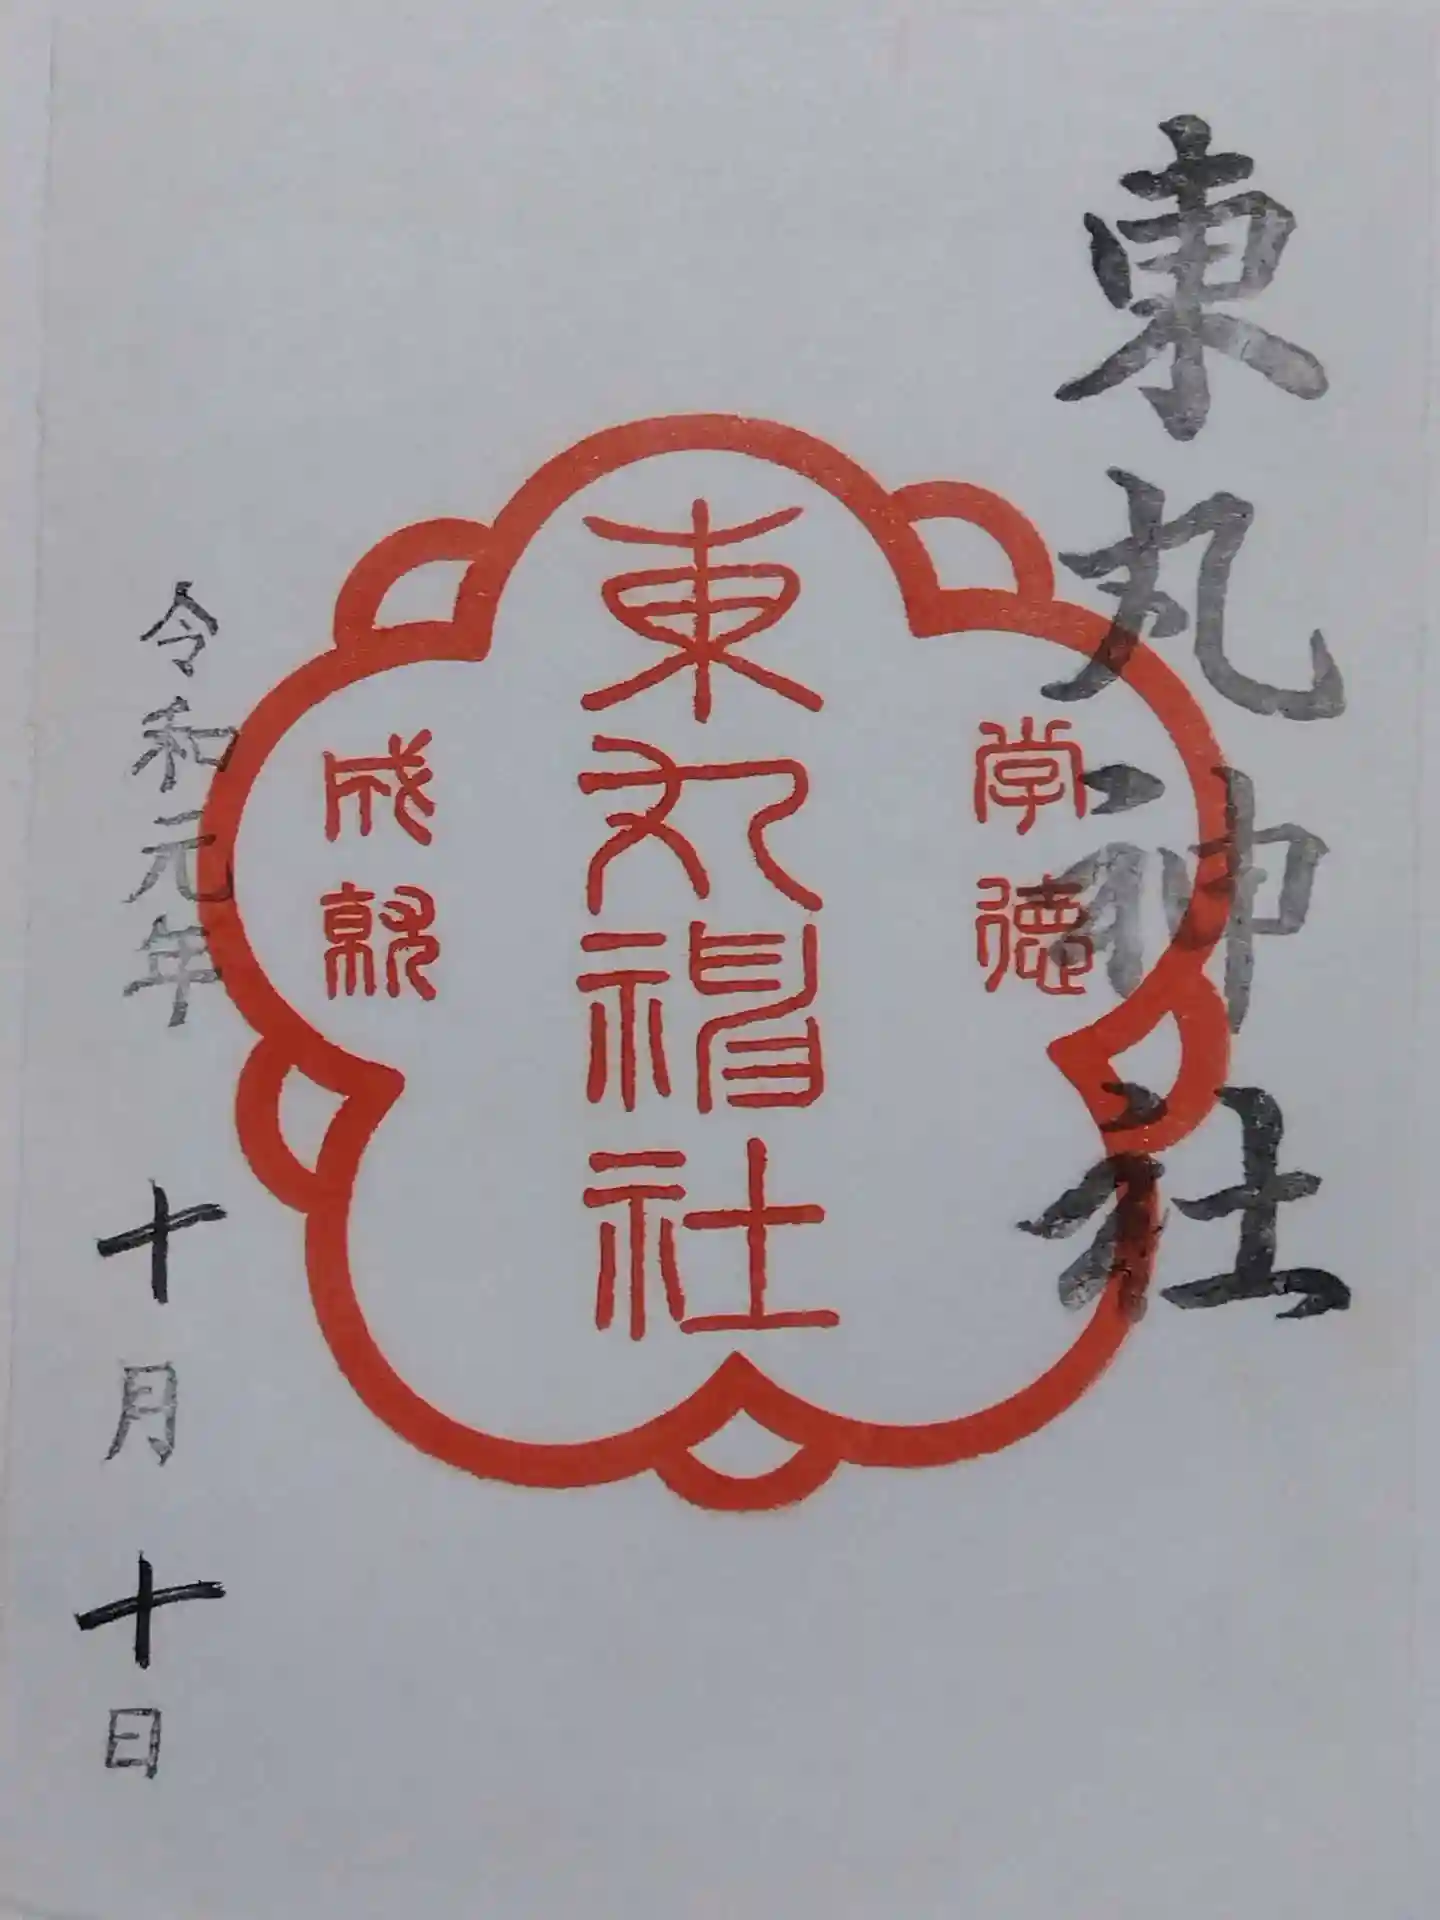 東丸神社
学徳
東丸神社
成就
令和元年 十月 十日